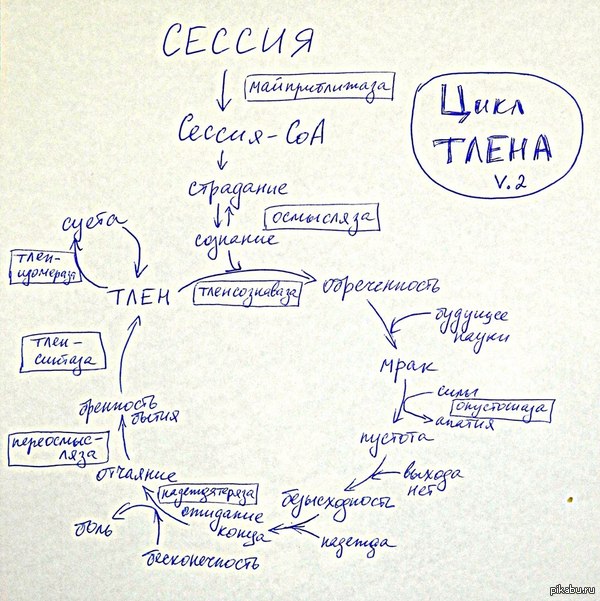 СЕССИЯ
майприближаза
Цикл
ТЛЕНА
v.2
Сессия-CoA
страдание
осмысляза
сознание
суета
тлен-
изомераза
ТЛЕН
тленсознаваза
обреченность
будущее
науки
тлен-
синтаза
мрак
силы
опустошаза
апатия
бренность
бытия
пустота
переосмыс-
ляза
отчаяние
выхода
нет
надеждатеряза
безысходность
ожидание
конца
боль
надежда
бесконечность
pikabu.ru